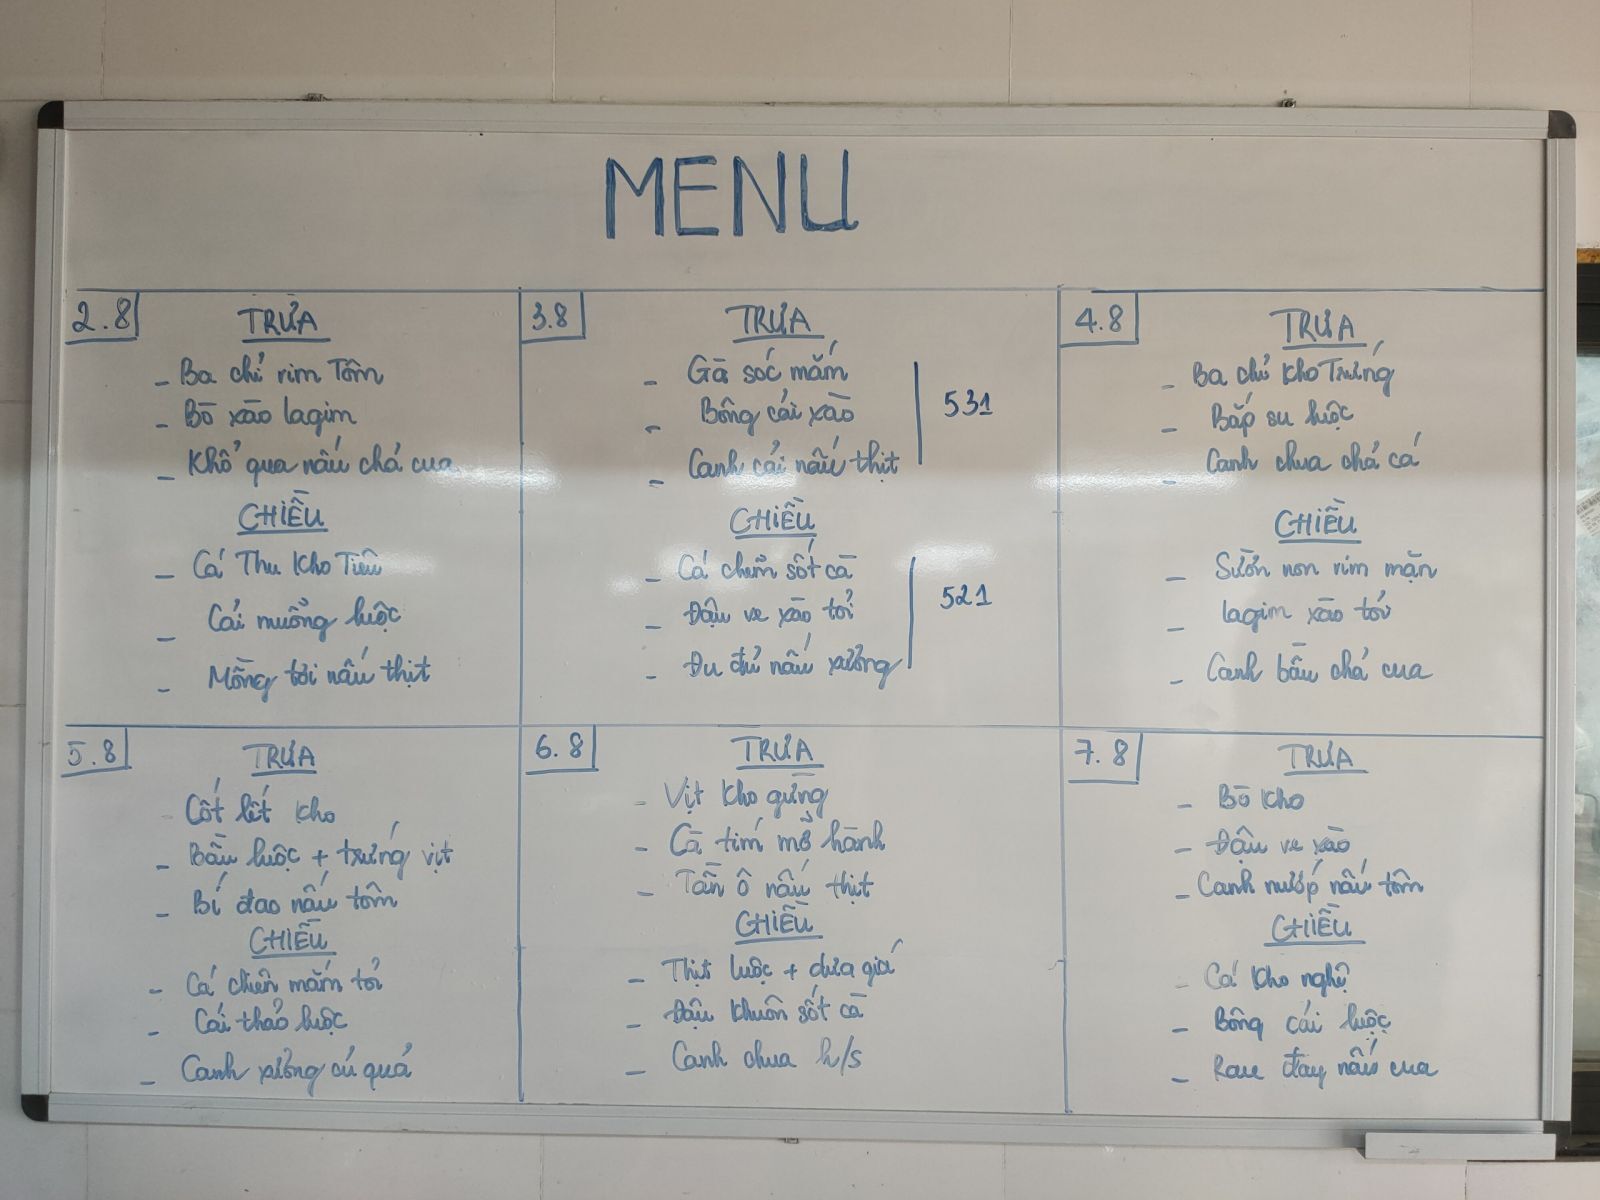 MENU
2.8
TRƯA
- Ba chỉ rim Tôm
- Bò xào lagim
- Khổ qua nấu chả cua
CHIỀU
- Cá Thu kho Tiêu
- Cải muống luộc
- Mồng tơi nấu thịt
3.8
TRƯA
- Gà sốc mắm
- Bông cải xào
- Canh cải nấu thịt
531
CHIỀU
- Cá chẽm sốt cà
- Đậu ve xào tỏi
- Đu đủ nấu xương
521
4.8
TRƯA
- Ba chỉ kho Trứng
- Bắp su luộc
- Canh chua chả cá
CHIỀU
- Sườn non rim mặn
- lagim xào tỏi
- Canh bầu chả cua
5.8
TRƯA
- Cốt lết kho
- Bầu luộc + trứng vịt
- Bí đao nấu tôm
CHIỀU
- Cá chiên mắm tỏi
- Cải thảo luộc
- Canh xương củ quả
6.8
TRƯA
- Vịt kho gừng
- Cà tím mỡ hành
- Tần ô nấu thịt
CHIỀU
- Thịt luộc + dưa giá
- Đậu khuôn sốt cà
- Canh chua h/s
7.8
TRƯA
- Bò kho
- Đậu ve xào
- Canh mướp nấu tôm
CHIỀU
- Cá kho nghệ
- Bông cải luộc
- Rau đay nấu cua